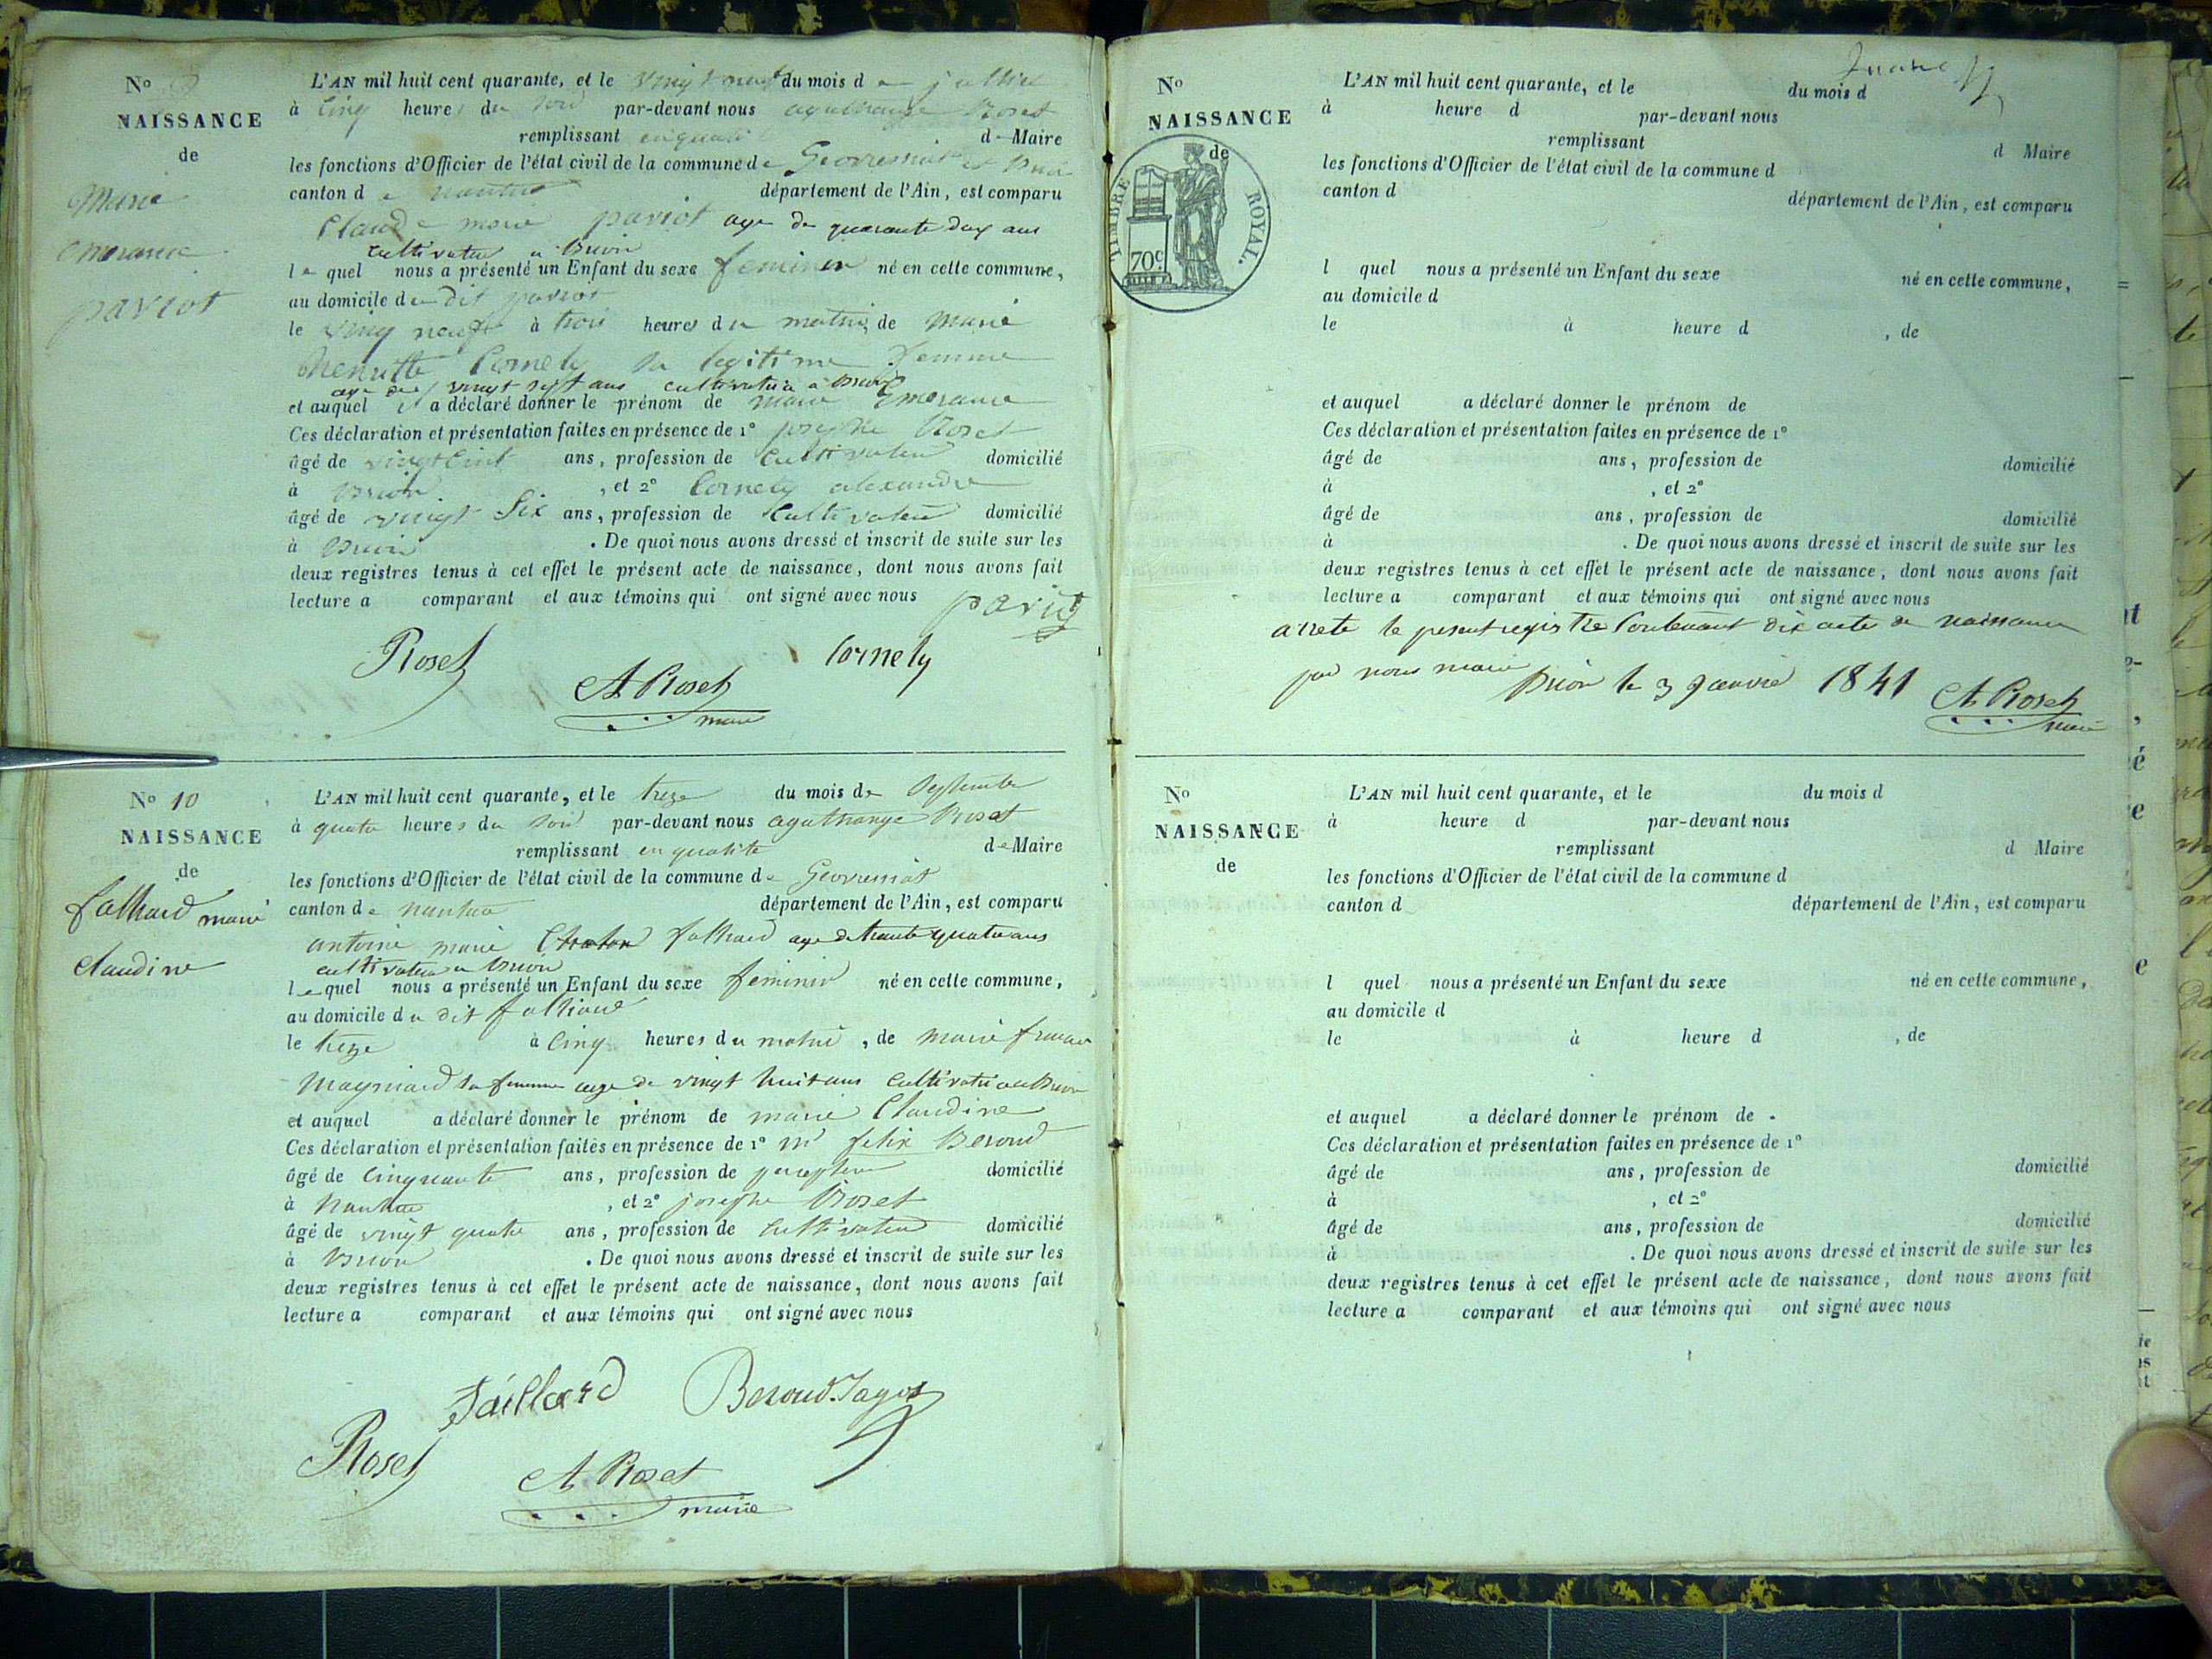 No 9
NAISSANCE
de
Marie
Emeranse
paviot
L'AN mil huit cent quarante, et le vingt neuf du mois de juillet
à cinq heures du soir par-devant nous agathange Roset
remplissant en qualité de Maire
les fonctions d'Officier de l'état civil de la commune de Geovressiat et
canton de nantua département de l'Ain, est comparu
Claude marie paviot age de quarante deux ans
cultivateur a Brion
le quel nous a présenté un Enfant du sexe feminin né en cette commune,
au domicile du dit paviot
le ving neuf à trois heures du matin, de Marie
Cornely sa legitime femme
age de vingt sept ans cultivatrice a Brion
et auquel il a déclaré donner le prénom de marie Emeranse
Ces déclaration et présentation faites en présence de 1° josephe Roset
âgé de ans, profession de Cultivateur domicilié
à Brion, et 2° Cornely alexandre
âgé de vingt Six ans, profession de Cultivateur domicilié
à Brion. De quoi nous avons dressé et inscrit de suite sur les
deux registres tenus à cet effet le présent acte de naissance, dont nous avons fait
lecture a comparant et aux témoins qui ont signé avec nous
paviot
Roset
A Roset
maire
Cornely
No 10
NAISSANCE
de
falliard marie
claudine
L'AN mil huit cent quarante, et le treze du mois de Septembre
à quatre heures du soir par-devant nous agathange Roset
remplissant en qualité de Maire
les fonctions d'Officier de l'état civil de la commune de Geovressiat
canton de nantua département de l'Ain, est comparu
antoine marie falliard age de trante quatre ans
cultivateur a Brion
le quel nous a présenté un Enfant du sexe feminin né en cette commune,
au domicile du dit falliard
le treze à cinq heures du matin, de marie
Maynard sa femme age de vingt huit ans
et auquel a déclaré donner le prénom de marie Claudine
Ces déclaration et présentation faites en présence de 1° mr felix Beroud
âgé de cinquante ans, profession de percepteur domicilié
à Nantua, et 2° josephe Roset
âgé de vingt quatre ans, profession de Cultivateur domicilié
à Brion. De quoi nous avons dressé et inscrit de suite sur les
deux registres tenus à cet effet le présent acte de naissance, dont nous avons fait
lecture a comparant et aux témoins qui ont signé avec nous
Faillard
Beroud
Roset
A Roset
maire
No
NAISSANCE
de
TIMBRE ROYAL.
70c
L'AN mil huit cent quarante, et le du mois d
à heure d par-devant nous
remplissant d Maire
les fonctions d'Officier de l'état civil de la commune d
canton d département de l'Ain, est comparu
l quel nous a présenté un Enfant du sexe né en cette commune,
au domicile d
le à heure d , de
et auquel a déclaré donner le prénom de
Ces déclaration et présentation faites en présence de 1°
âgé de ans, profession de domicilié
à , et 2°
âgé de ans, profession de domicilié
à . De quoi nous avons dressé et inscrit de suite sur les
deux registres tenus à cet effet le présent acte de naissance, dont nous avons fait
lecture a comparant et aux témoins qui ont signé avec nous
arrete le present registre Contenant dix actes de naissance
par nous maire Brion le 3 janvier 1841 A Roset
maire
No
NAISSANCE
de
L'AN mil huit cent quarante, et le du mois d
à heure d par-devant nous
remplissant d Maire
les fonctions d'Officier de l'état civil de la commune d
canton d département de l'Ain, est comparu
l quel nous a présenté un Enfant du sexe né en cette commune,
au domicile d
le à heure d , de
et auquel a déclaré donner le prénom de
Ces déclaration et présentation faites en présence de 1°
âgé de ans, profession de domicilié
à , et 2°
âgé de ans, profession de domicilié
à . De quoi nous avons dressé et inscrit de suite sur les
deux registres tenus à cet effet le présent acte de naissance, dont nous avons fait
lecture a comparant et aux témoins qui ont signé avec nous